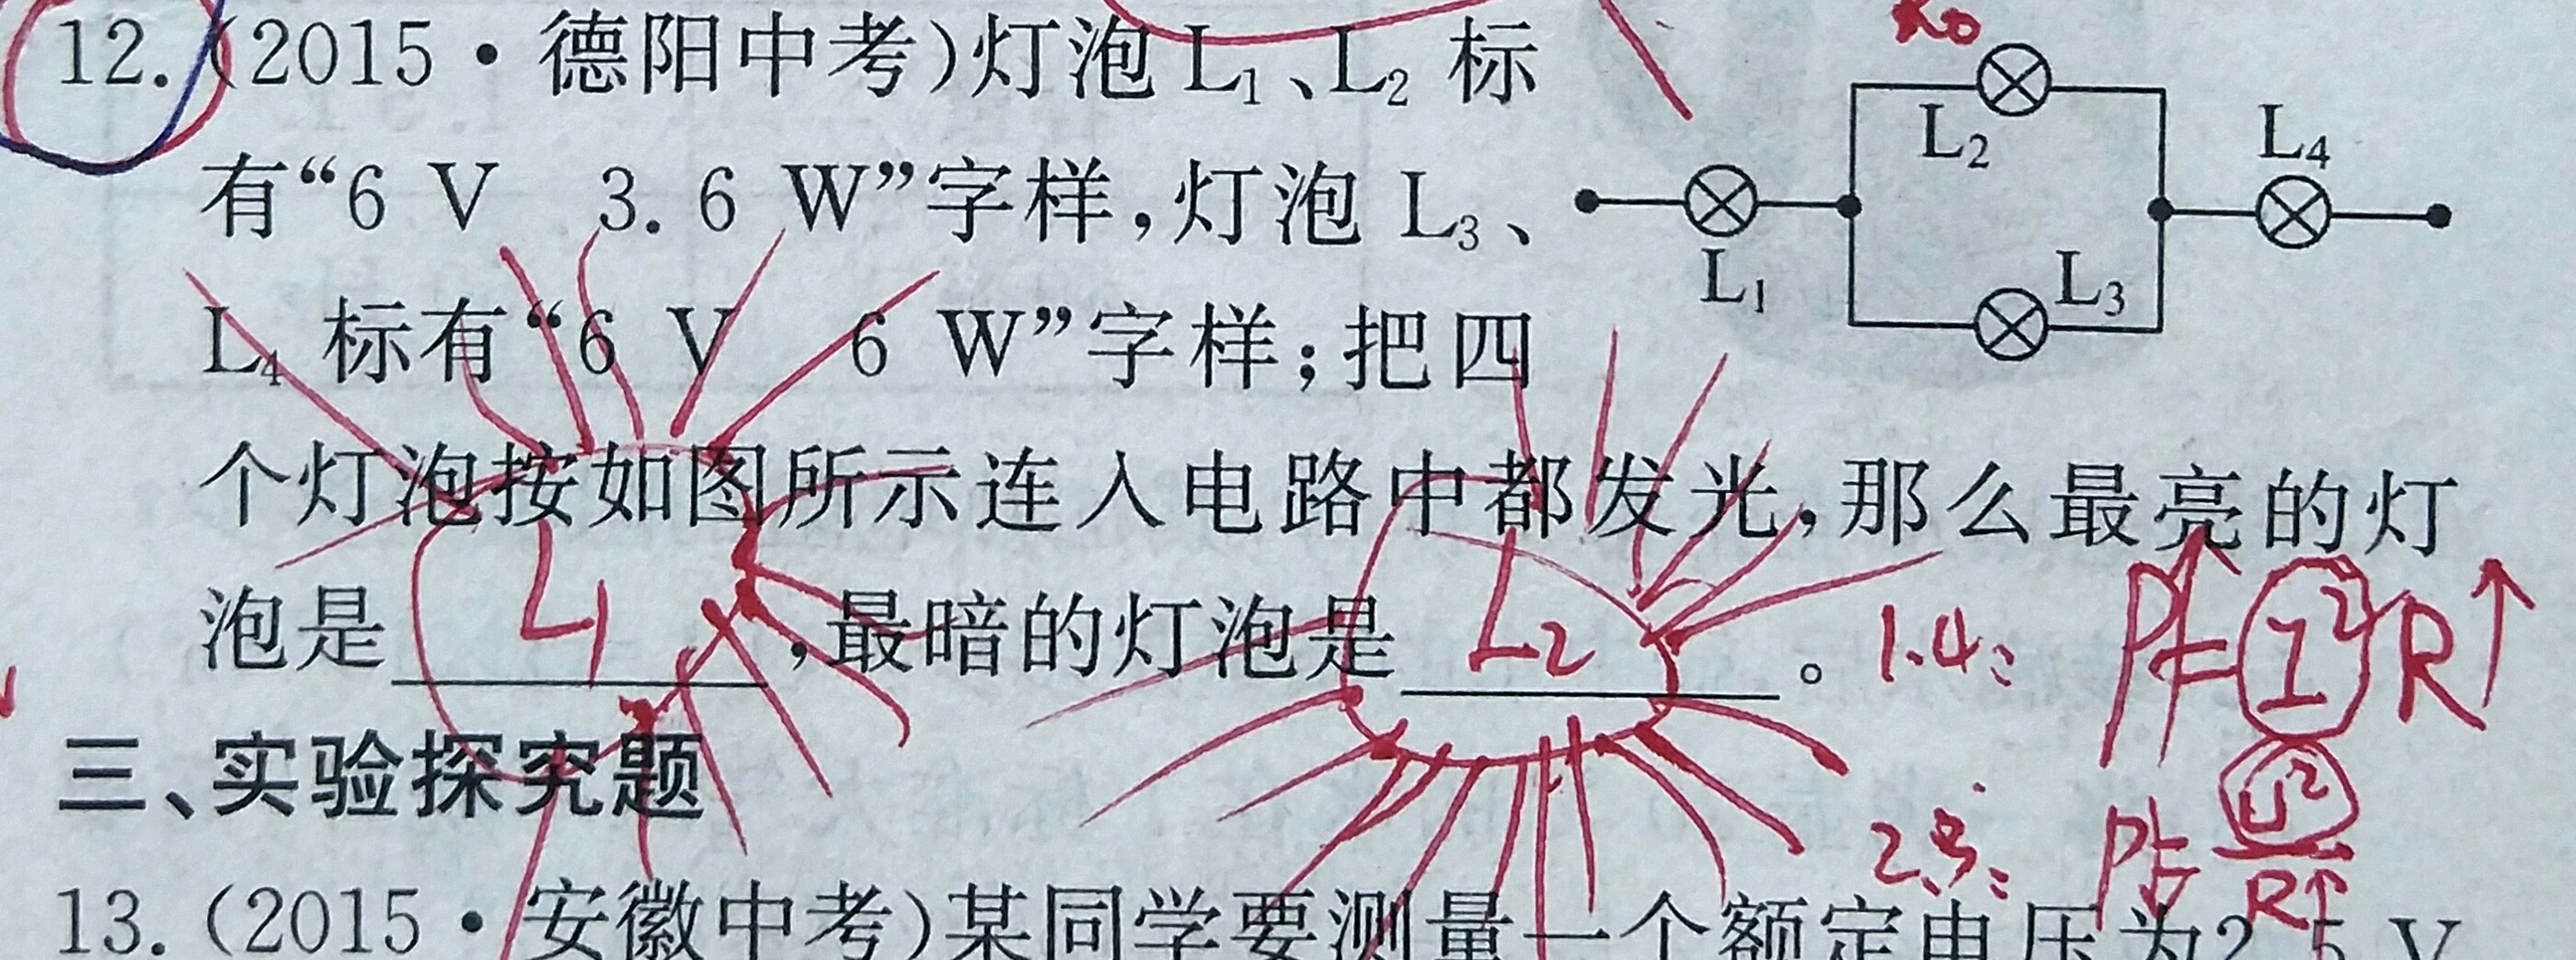 12.(2015·德阳中考)灯泡 L₁、L₂ 标
有“6 V 3.6 W”字样,灯泡 L₃、
L₄ 标有“6 V 6 W”字样;把四
个灯泡按如图所示连入电路中都发光,那么最亮的灯
泡是 L₁ ,最暗的灯泡是 L₂ 。
L₂
L₄
L₁
L₃
1.4: P=I²R↑
2.3: P=U²/R↑
三、实验探究题
13.(2015·安徽中考)某同学要测量一个额定电压为2.5 V